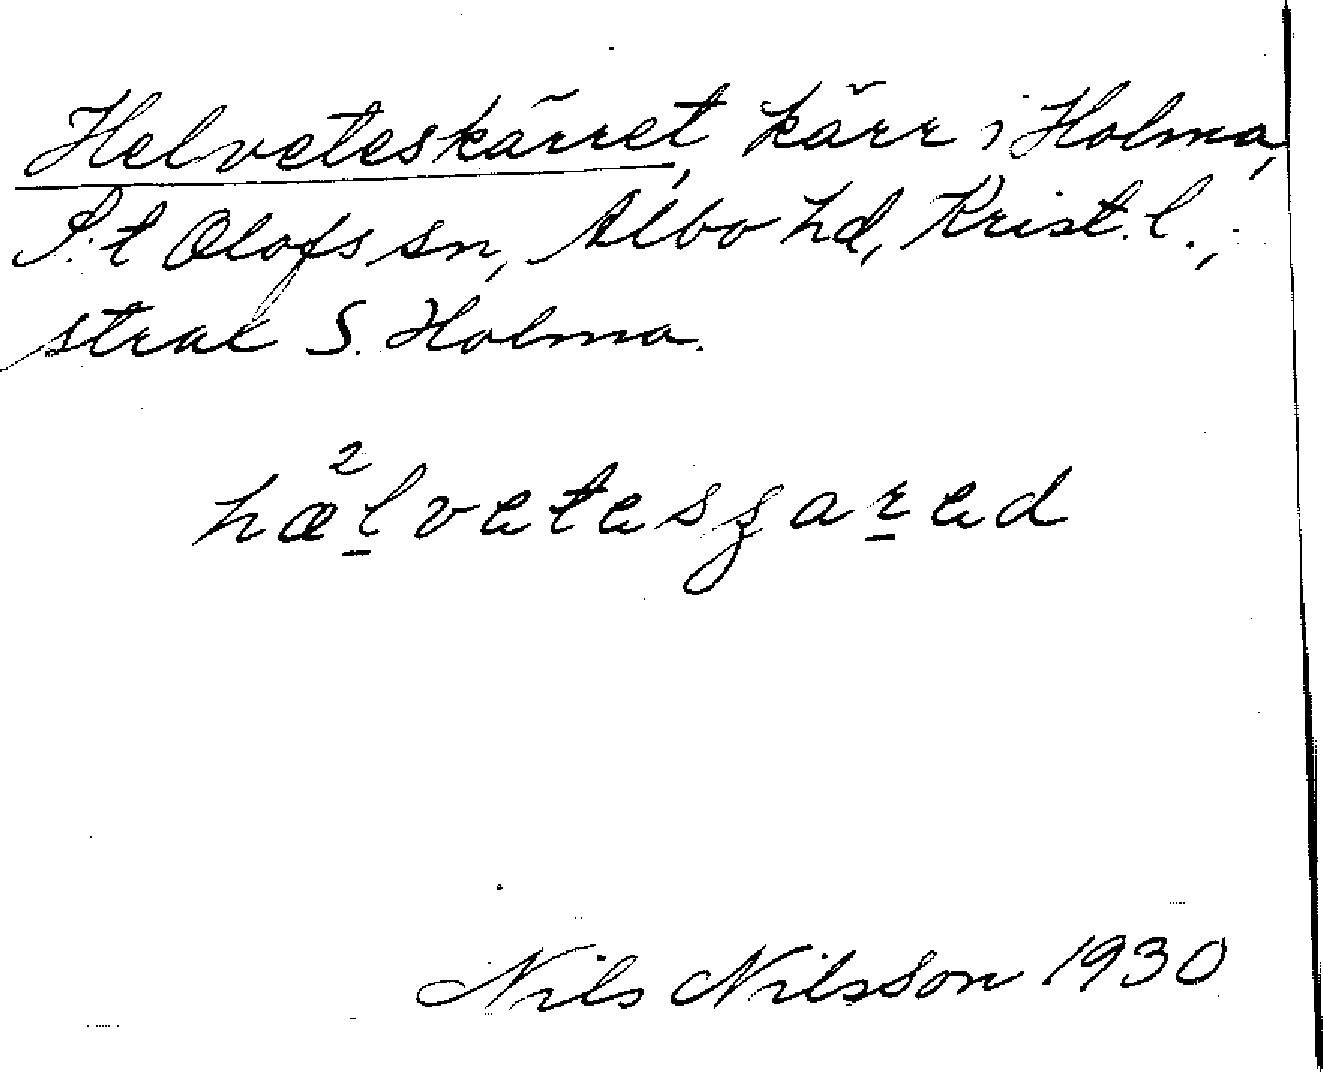 Helveteskärret, kärr i Holma,
S:t Olofs sn, Albo hd, Krist. l.,
strax S. Holma.
hæ²lvetesʂarəd
Nils Nilsson 1930